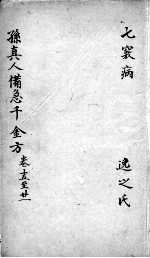 七襄病 逸之氏
孫真人備急千金方 卷十五至廿一